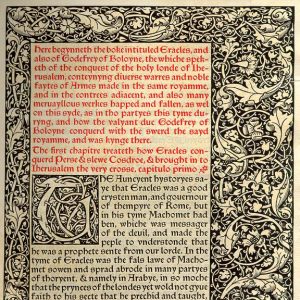 Here begynneth the boke intituled Eracles, and
also of Godefrey of Boloyne, the whiche speketh
of the conquest of the holy londe of Jherusalem,
conteynyng diuerse warres and noble
faytes of Armes made in the same royamme,
and in the contrees adiacent, and also many
meruayllous werkes happed and fallen, as wel
on this syde, as in tho partyes this tyme duryng,
and how the valyant duc Godefrey of
Boloyne conquerd with the swerd the sayd
royamme, and was kynge there.
The first chapitre treateth how Eracles conquerd
Perse & slewe Cosdroe, & brought in to
Jherusalem the very crosse, capitulo primo
THE Auncyent hystoryes saye
that Eracles was a good
crysten man, and gouernour
of thempyre of Rome, but
in his tyme Machomet had
ben, whiche was messager
of the deuil, and made the
peple to vnderstonde that
he was a prophete sente from our lorde. In the
tyme of Eracles was the fals lawe of Machomet
sowen and sprad abrode in many partyes
of thoryent, & namely in Arabye, in so moche
that the prynces of the londes yet wold not gyue
faith to his secte that he prechid and taught